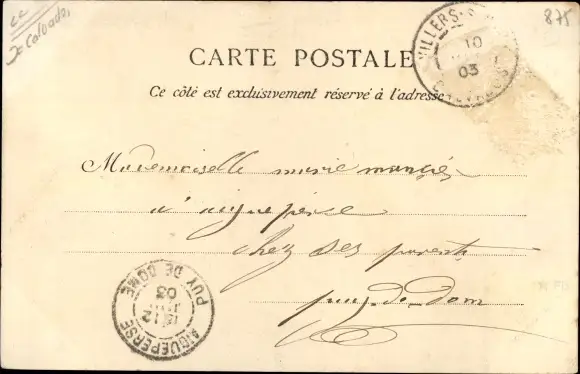 Calvados
875
CARTE POSTALE
Ce côté est exclusivement réservé à l'adresse
VILLERS-S
10
03
CALVADOS
Mademoiselle marie
a' aigueperce
chez ses parents
puy-de-dom
AIGUEPERSE
12
03
PUY DE DOME